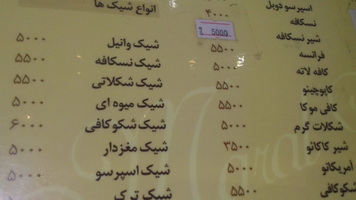 اسپرسو دوبل ۴۰۰۰
نسکافه
شیر نسکافه 5000
فرانسه ۵۵۰۰
کافه لاته ۵۰۰۰
کاپوچینو ۵۵۰۰
کافی موکا ۵۵۰۰
شکلات گرم ۵۰۰۰
شیر کاکائو ۳۵۰۰
آمریکانو ۵۰۰۰
شکوکافی ۵۵۰۰
انواع شیک ها
شیک وانیل ۵۰۰۰
شیک نسکافه ۵۵۰۰
شیک شکلاتی ۵۵۰۰
شیک میوه ای ۵۰۰۰
شیک شکوکافی ۶۰۰۰
شیک مغزدار ۵۰۰۰
شیک اسپرسو ۵۵۰۰
شیک ترک